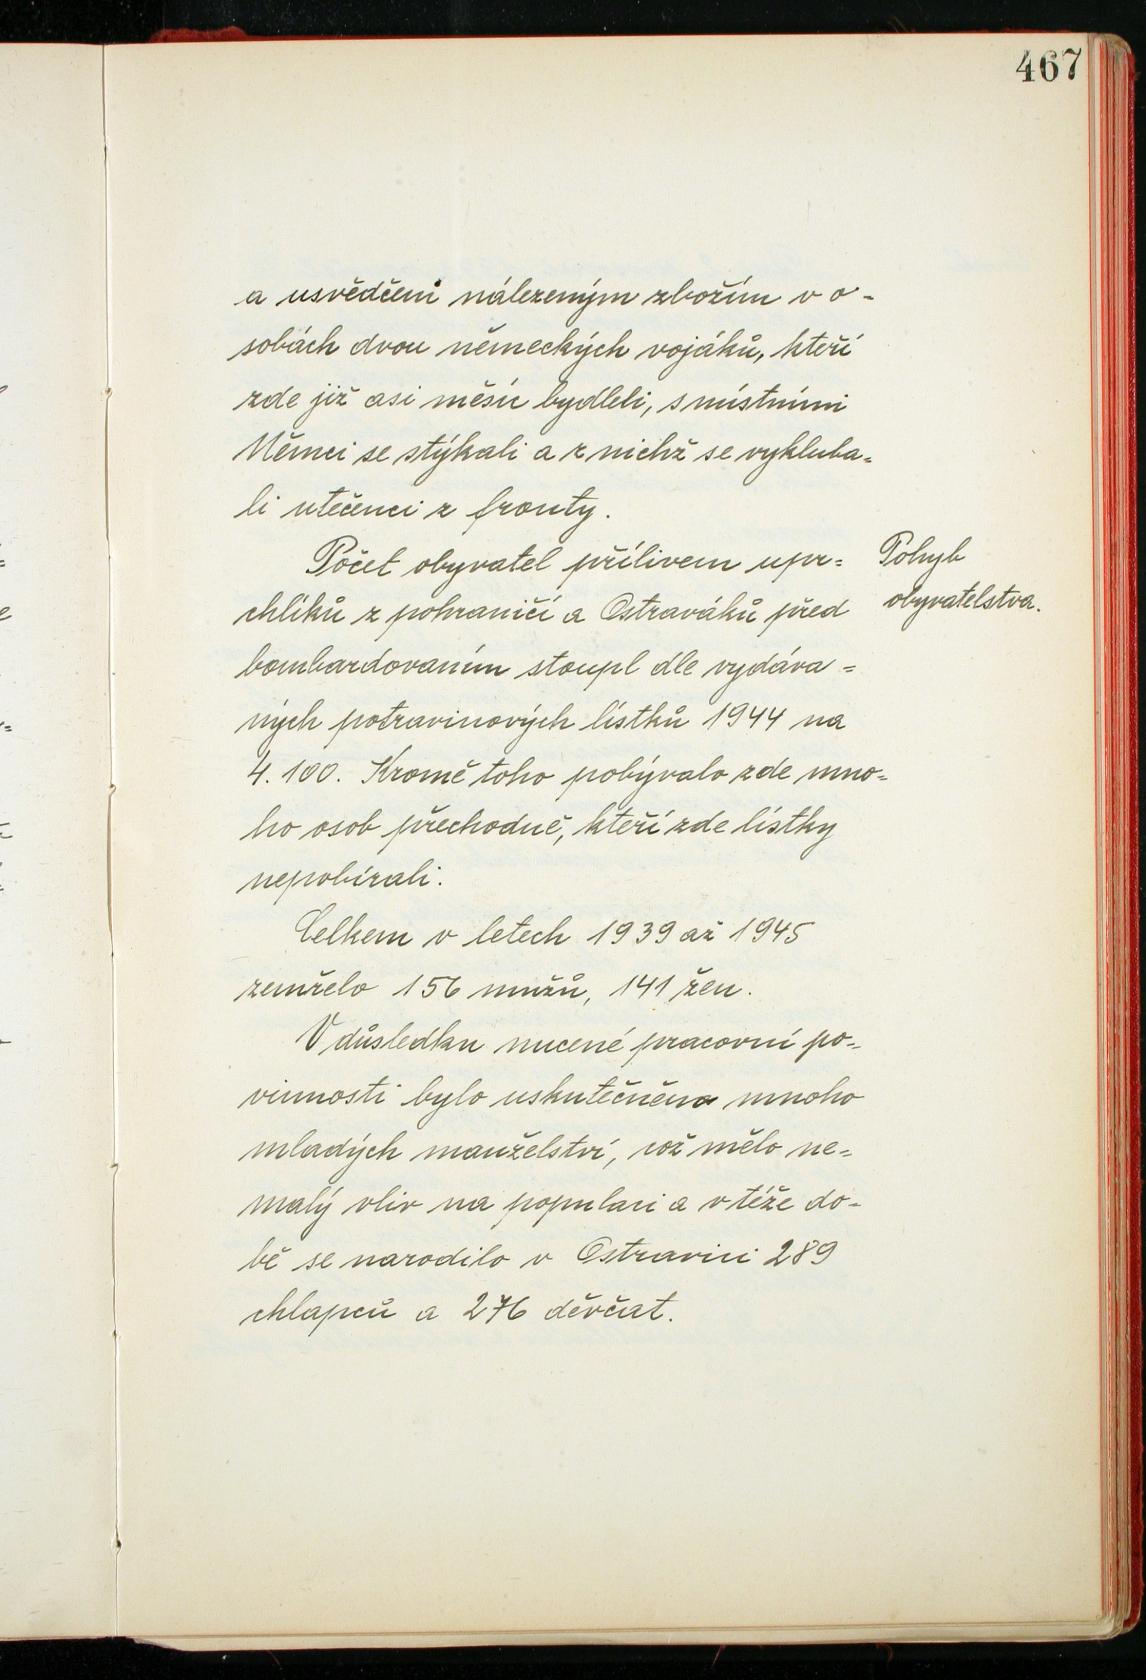 467
a usvědčeni nálezeným zbožím v o-
sobách dvou německých vojáků, kteří
zde již asi měsíc bydleli, s místními
Němci se stýkali a z nichž se vykluba=
li utečenci z fronty.
Počet obyvatel přílivem upr=
chlíků z pohraničí a Ostraváků před
bombardovaním stoupl dle vydáva=
ných potravinových lístků 1944 na
4.100. Kromě toho pobývalo zde mno=
ho osob přechodně, kteří zde lístky
nepobírali.
Pohyb
obyvatelstva.
Celkem v letech 1939 až 1945
zemřelo 156 mužů, 141 žen.
V důsledku nucené pracovní po=
vinnosti bylo uskutečněno mnoho
mladých manželství, což mělo ne=
malý vliv na populaci a v téže do=
bě se narodilo v Ostravici 289
chlapců a 276 děvčat.